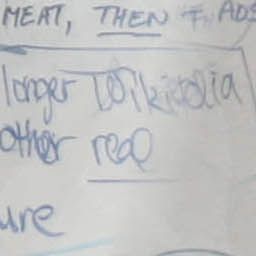 MEAT, THEN
longer Wikipedia
other real
ure